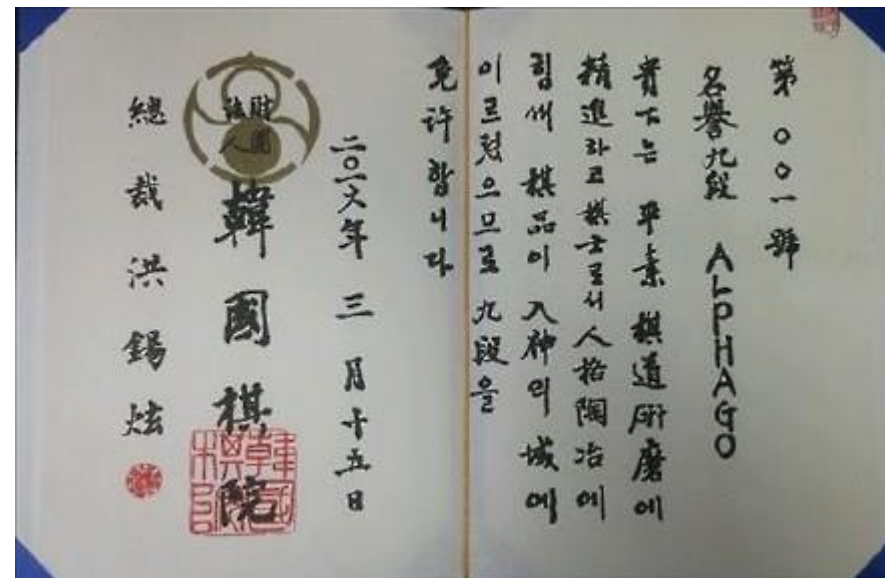 第〇〇一號
名譽九段 ALPHAGO
貴下는 平素 棋道硏磨에
精進하고 棋士로서 人格陶冶에
힘써 棋品이 入神의 域에
이르렀으므로 九段을
免許합니다
二〇一六年 三月十五日
財團法人
韓國棋院
總裁 洪錫炫